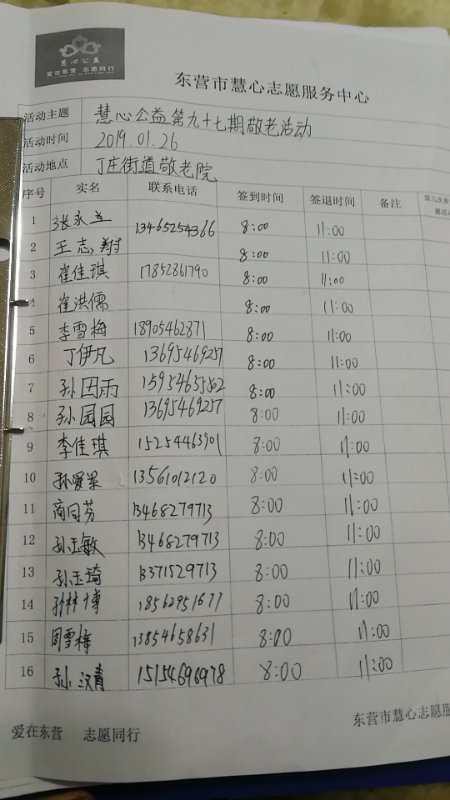 慧心公益
爱在东营 志愿同行
东营市慧心志愿服务中心
活动主题 慧心公益第九十七期敬老活动
活动时间 2019.01.26
活动地点 丁庄街道敬老院
序号 实名 联系电话 签到时间 签退时间 备注
1 张永兰 13465254366 8:00 11:00
2 王志翔 8:00 11:00
3 崔佳琪 17852861790 8:00 11:00
4 崔洪儒 8:00 11:00
5 李雪梅 18905462871 8:00 11:00
6 丁伊凡 13695469257 8:00 11:00
7 孙因雨 15954655502 8:00 11:00
8 孙园园 13695469257 8:00 11:00
9 李佳琪 15254463901 8:00 11:00
10 孙爱菜 13561012120 8:00 11:00
11 商同芬 13468279713 8:00 11:00
12 孙玉敏 13468279713 8:00 11:00
13 孙玉琦 13371529713 8:00 11:00
14 孙林博 18562951677 8:00 11:00
15 周雪梅 13854658631 8:00 11:00
16 孙汉青 15154696978 8:00 11:00
爱在东营 志愿同行 东营市慧心志愿服